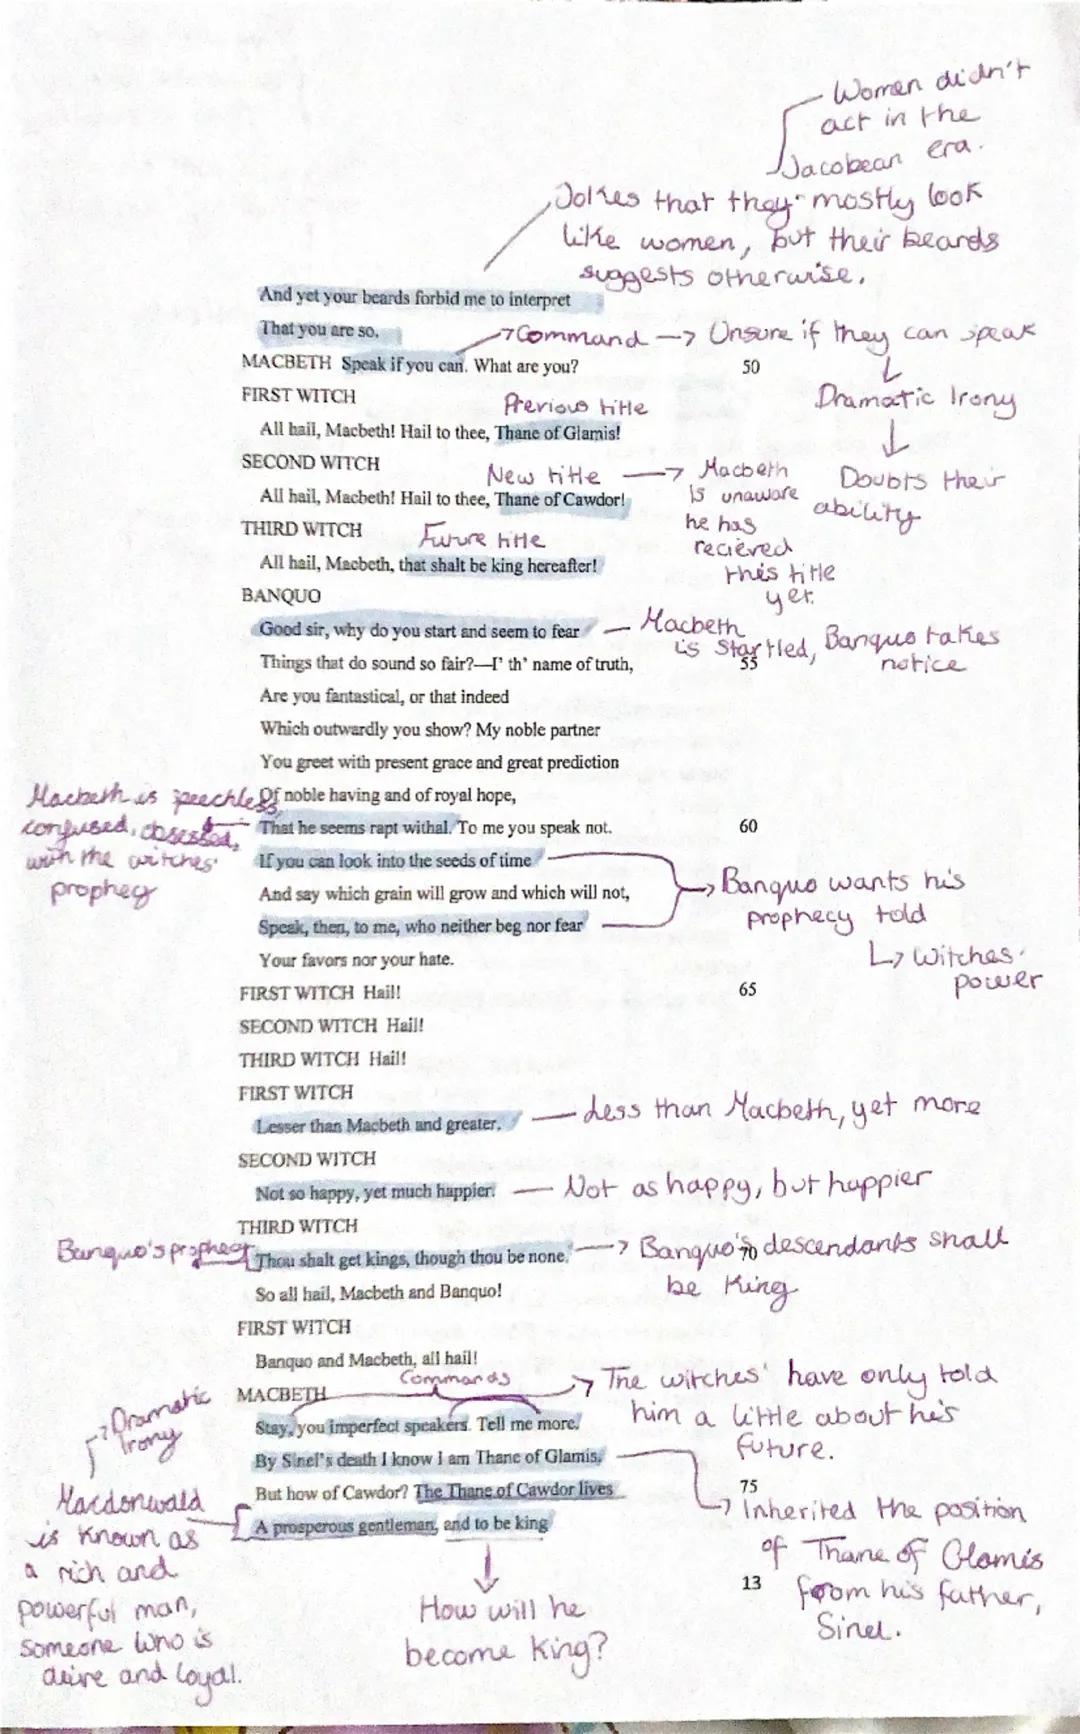 Women didn't
act in the
Jacobean era.
Jokes that they mostly look
like women, but their beards
suggests otherwise.
And yet your beards forbid me to interpret
That you are so.
Command → Unsure if they can speak
MACBETH Speak if you can. What are you?
50
FIRST WITCH
Previous title
Dramatic Irony
All hail, Macbeth! Hail to thee, Thane of Glamis!
SECOND WITCH
New title → Macbeth
is unaware
he has
recieved
this title
yet.
Doubts their
ability
All hail, Macbeth! Hail to thee, Thane of Cawdor!
THIRD WITCH
Future title
All hail, Macbeth, that shalt be king hereafter!
BANQUO
Good sir, why do you start and seem to fear
Macbeth
is startled, Banquo takes
notice
Things that do sound so fair?—I' th' name of truth,
55
Are you fantastical, or that indeed
Which outwardly you show? My noble partner
You greet with present grace and great prediction
Of noble having and of royal hope,
Macbeth is speechless,
confused, obsessed,
with the witches'
prophecy
That he seems rapt withal. To me you speak not.
60
If you can look into the seeds of time
And say which grain will grow and which will not,
Banquo wants his
prophecy told
↳ Witches'
power
Speak, then, to me, who neither beg nor fear
Your favors nor your hate.
FIRST WITCH Hail!
65
SECOND WITCH Hail!
THIRD WITCH Hail!
FIRST WITCH
Lesser than Macbeth and greater.
— Less than Macbeth, yet more
SECOND WITCH
Not so happy, yet much happier.
— Not as happy, but happier
THIRD WITCH
Banquo's prophecy
Thou shalt get kings, though thou be none.
70
→ Banquo's descendants shall
be King
So all hail, Macbeth and Banquo!
FIRST WITCH
Banquo and Macbeth, all hail!
Commands
MACBETH
The witches' have only told
him a little about he's
future.
Stay, you imperfect speakers. Tell me more.
By Sinel's death I know I am Thane of Glamis.
But how of Cawdor? The Thane of Cawdor lives
75
A prosperous gentleman, and to be king
Inherited the position
of Thane of Glamis
from his father,
Sinel.
Dramatic
Irony
Macdonwald
is known as
a rich and
powerful man,
someone who is
alive and loyal.
How will he
become King?
13